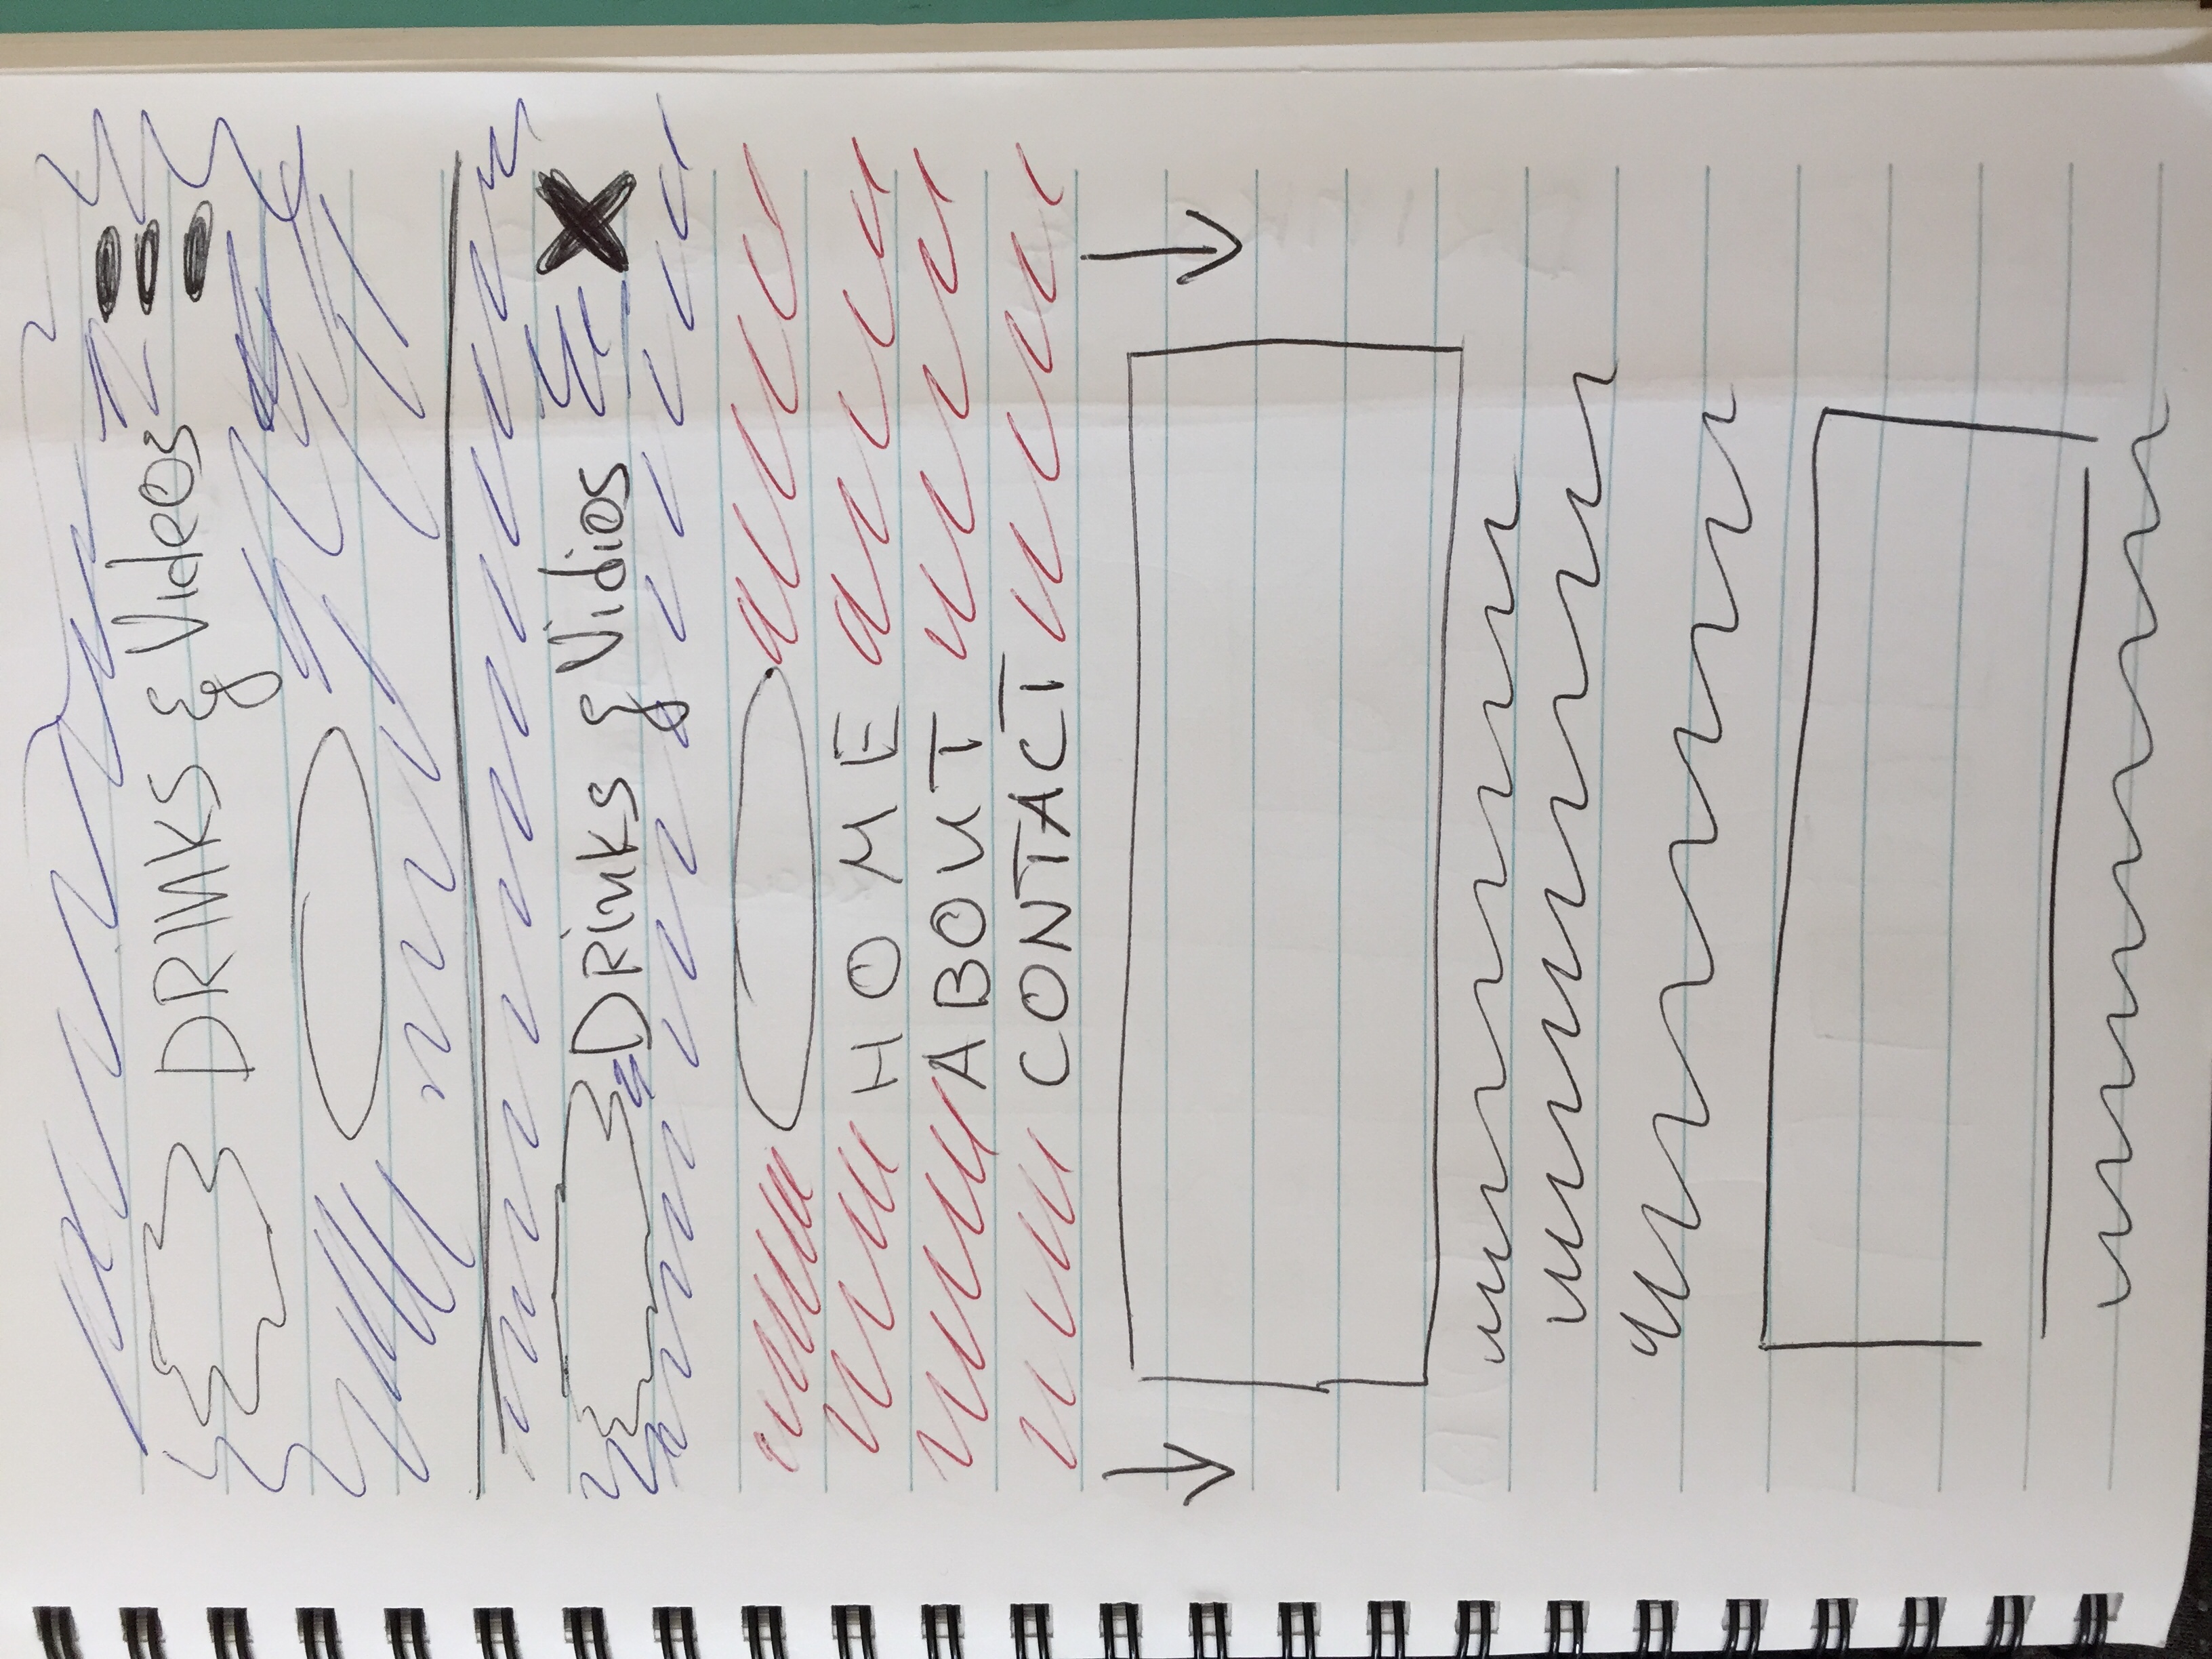 DRINKS & Videos
Drinks & Vidios
HOME
ABOUT
CONTACT